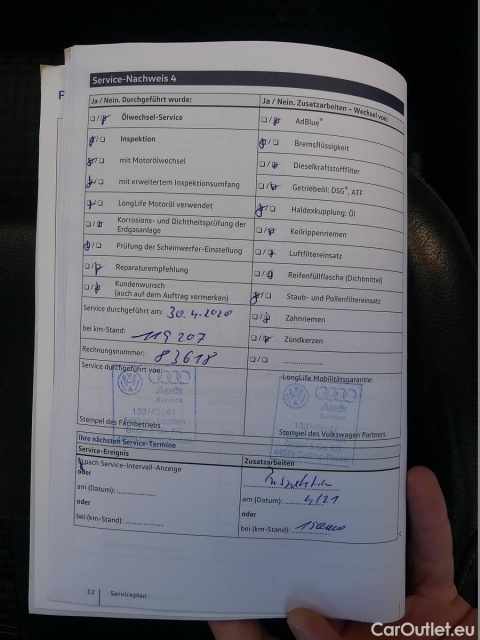 Service-Nachweis 4
Ja / Nein. Durchgeführt wurde:
Ölwechsel-Service
Inspektion
mit Motorölwechsel
mit erweitertem Inspektionsumfang
LongLife Motoröl verwendet
Korrosions- und Dichtheitsprüfung der
Erdgasanlage
Prüfung der Scheinwerfer-Einstellung
Reparaturempfehlung
Kundenwunsch
(auch auf dem Auftrag vermerken)
Service durchgeführt am: 30.4.2020
bei km-Stand: 119 207
Rechnungsnummer: 83618
Service durchgeführt von:
Audi
Service
133/43141
Stempel des Fachbetriebs
Ja / Nein. Zusatzarbeiten – Wechsel von:
AdBlue®
Bremsflüssigkeit
Dieselkraftstofffilter
Getriebeöl: DSG®, ATF
Haldexkupplung: Öl
Keilrippenriemen
Luftfiltereinsatz
Reifenfüllflasche (Dichtmittel)
Staub- und Pollenfiltereinsatz
Zahnriemen
Zündkerzen
LongLife Mobilitätsgarantie:
Audi
Service
Stempel des Volkswagen Partners
Ihre nächsten Service-Termine
Service-Ereignis
nach Service-Intervall-Anzeige
oder
am (Datum):
oder
bei (km-Stand):
Zusatzarbeiten
Inspektion
am (Datum): 4/21
oder
bei (km-Stand):
12 Serviceplan
CarOutlet.eu